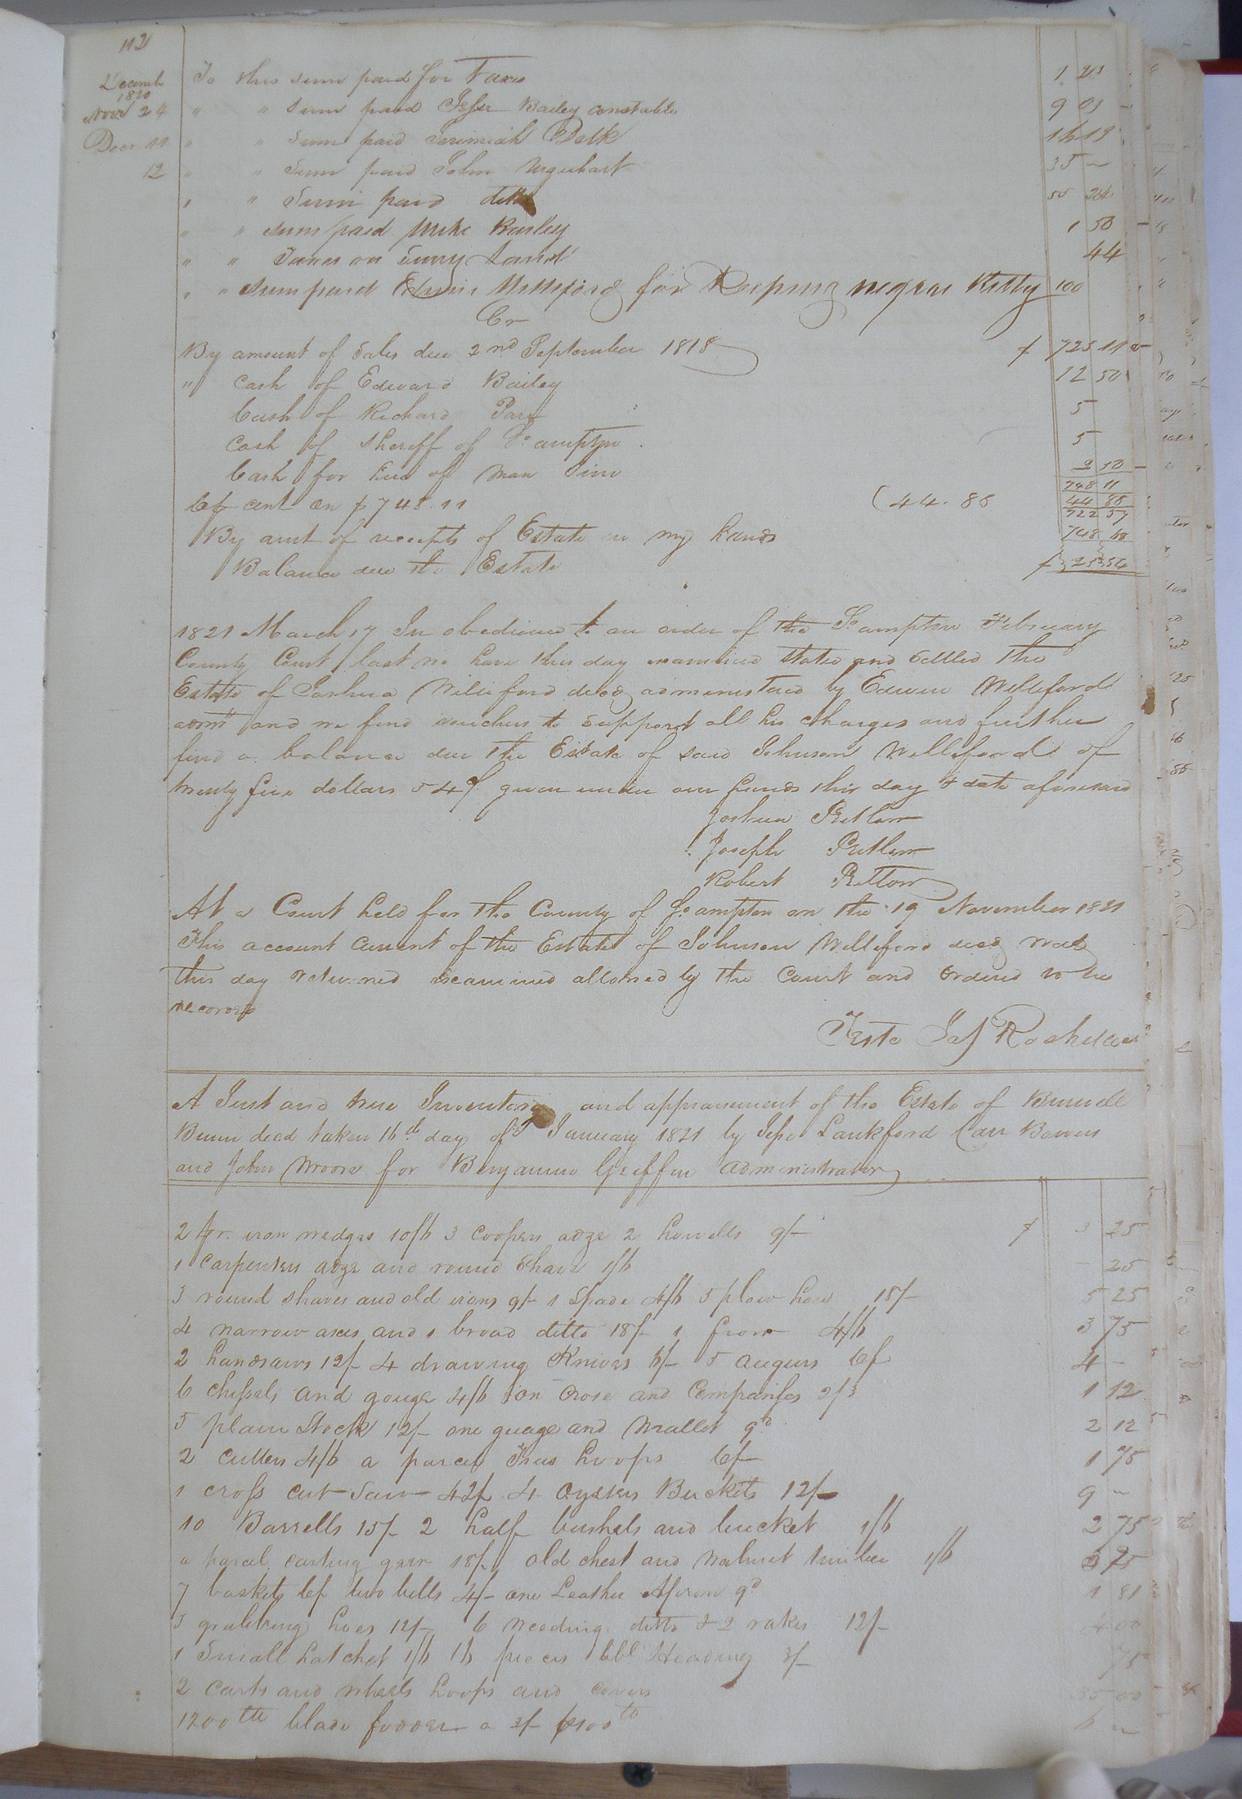 112
Decemb 1820 To this sum paid for Taxes 1
Novr 24 " " Sum paid Bailey constable 9 01
Decr 11 " " Sum paid Jeremiah 14 19
12 " " Sum paid John Urquhart 35 –
" " Sum paid ditto
" " Sum paid Bailey 1 50
" " Taxes on Land 44
" " Sum paid for Keeping negroe Kitty 100
Cr
By amount of Sales due 2nd September 1818 725 11
" Cash of Edward Bailey 12 50
Cash of Richard 5
Cash of Sheriff of So.ampton 5
Cash for hire of Man
cent on $748.11 (44.88
748 11
44 88
By amt of receipts of Estate in my hands
Balance due the Estate
1821 March 17 In obedience to an order of the So.ampton February
County Court last we have this day examined Stated and Settled the
Estate of Joshua Williford decd administered by Edwin Williford
admr and we find vouchers to Support all his Charges and further
find a balance due the Estate of said Johnson Williford of
twenty five dollars 54 given under our hands this day & date aforesaid
Joshua Pretlow
Joseph Pretlow
Robert Pretlow
At a Court held for the County of So.ampton on the 19 November 1821
This account Current of the Estate of Johnson Williford decd was
this day returned examined allowed by the Court and ordered to be
recorded
Teste Jas Rochelle
A Just and true Inventory and appraisement of the Estate of Burwell
Bunn decd taken 16th day of January 1821 by Lankford Carr Bowers
and John Moore for Benjamin Griffin administrator
2 pr. iron wedges 10/6 3 coopers adze 2 howells 9/– 3 25
1 carpenters adze and round Shave 1/6 – 25
3 round shaves and old irons 9/– 1 Spade 4/6 5 plow hoes 18/– 5 25
4 narrow axes and 1 broad ditto 18/– 1 frow 4/6 3 75
2 handsaws 12/– 4 drawing Knives 6/– 5 augurs 6/– 4 –
6 chissels and gouge 4/6 on Crose and Compasses 2/3 1 12
5 plain Stock 12/– one guage and Mallet 9d 2 12
2 Cutters 4/6 a parcel Truss hoops 6/– 1 75
1 cross cut Saw 42/– 4 Oyster Buckets 12/– 9 –
10 Barrells 15/– 2 half bushels and bucket 1/6 2 75
a parcel carting gear 18/– old chest and Walnut timber 1/6
7 baskets 6/– two bells 4/– one Leather Apron 9d 1 81
3 grubbing hoes 12/– 6 weeding ditto & 2 rakes 12/– 4 00
1 Small hatchet 1/6 16 pieces bbl Heading 3/– 75
2 carts and wheels hoops and 35 00
1200 lb blade fodder a 3/– 6 –